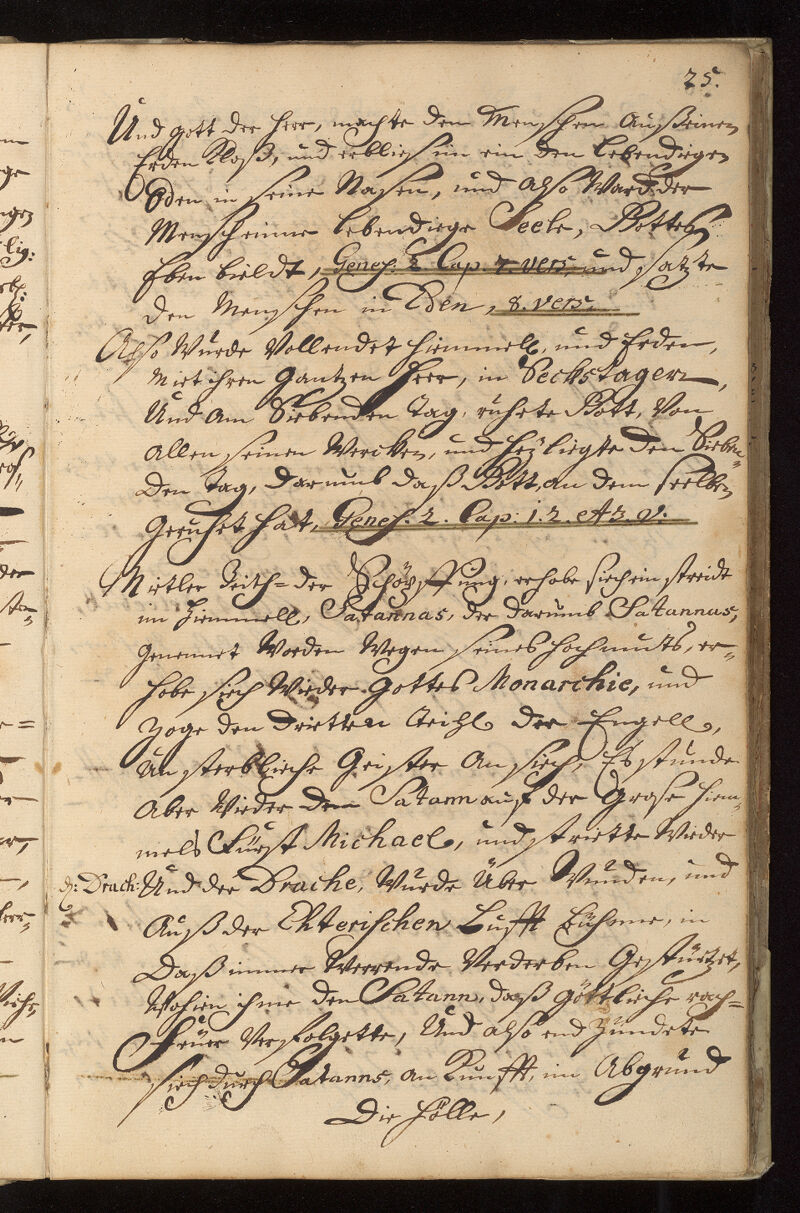 25.
Und Gott der Herr, machte den Menschen Auß einen
Erden Kloß, und erbließ im ein den Lebendiegen
Oden in seine Nasen, und Also Ward der
Mensch eine Lebendiege Seele, Gottes
Eben bieldt, Genes. 2. Cap. 7. vers. und satzte
den Menschen in Eden, 8. vers.
Also Wurde Vollendet Hiemmell, und Erden,
Miet ihren Gantzen Heer, in Sechstagen,
Und Am Siebenden Tag, ruhete Gott, Von
Allen seinen Wercken, und heyliegte den Sieben-
den Tag, darumb daß Gott an dem seelben
Geruhet hat, Genes. 2. Cap: 1. 2. et 3. v.
Mietler Zeith= der Schöpffung, erhobe siech ein streidt
im Hiemmell, Satannas, der darumb Satannas,
genennet Worden Wegen seines Hochmuts, er-
hobe siech Wieder Gottes Monarchie, und
zoge den drietten Theihl der Engell,
Unsterbliche Geister An siech, Es stunde
Aber Wieder den Satann auf der Grose Hiem-
mels Fürst Michael, und striette Wieder
d: Drach: Und der Drache, Wurde Über Wunden, und
Auß der Ehterischen Lufft Bühne, in
Daß immer Werende Verderben Gestürtzet,
Wohien ihme den Satann, daß Göttliche rach-
Feüer Verfolgette, Und also end Zündete
siech durch Satanns, An Kunfft, im Abgrund
Die Hölle,